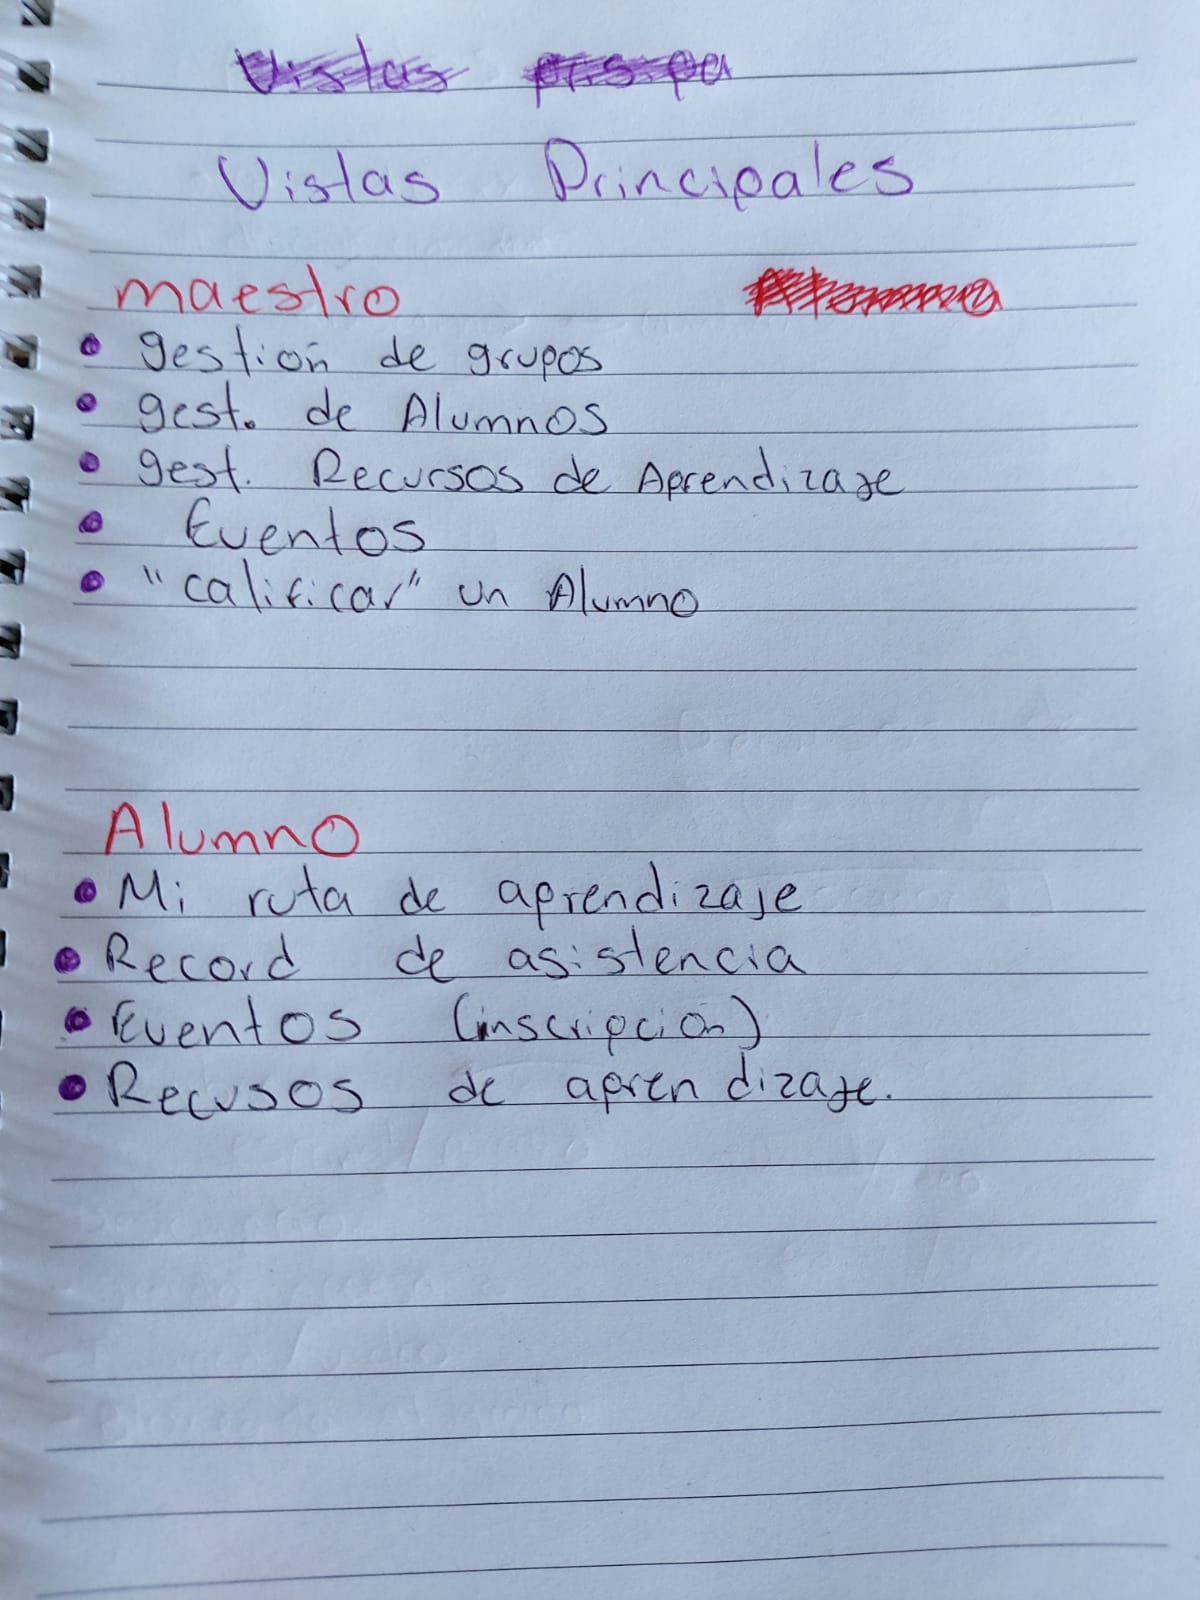 Vistas Principales
maestro
gestión de grupos
gest. de Alumnos
gest. Recursos de Aprendizaje
Eventos
"calificar" un Alumno
Alumno
Mi ruta de aprendizaje
Record de asistencia
Eventos (inscripción)
Recusos de aprendizaje.